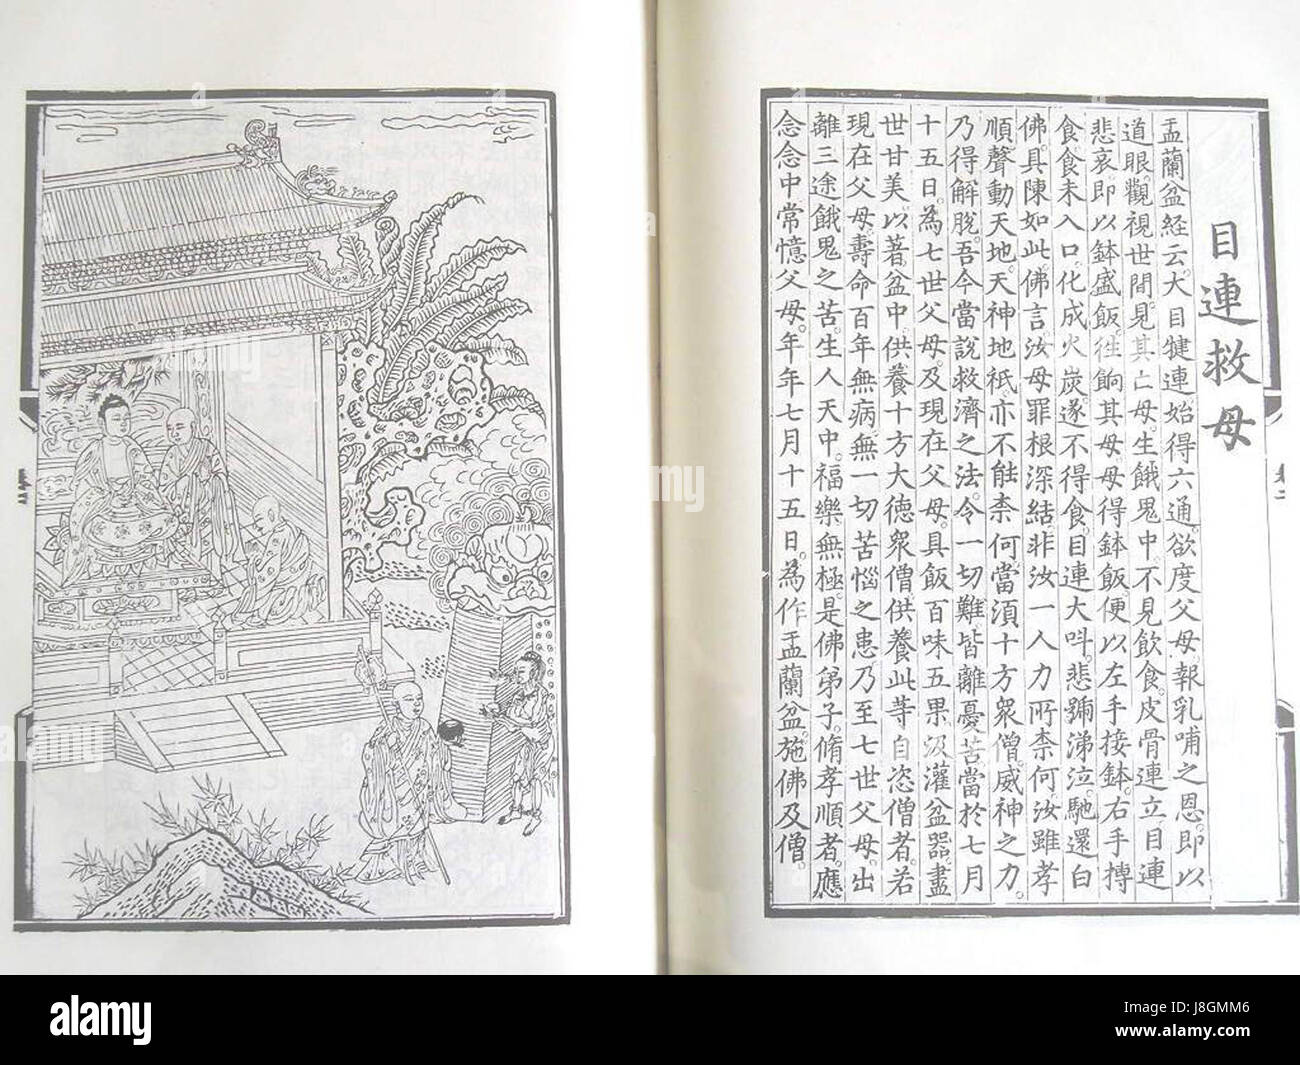 目連救母
盂蘭盆經云。大目犍連始得六通。欲度父母。報乳哺之恩。即以
道眼觀視世間。見其亡母。生餓鬼中。不見飲食。皮骨連立。目連
悲哀。即以鉢盛飯。徃餉其母。母得鉢飯。便以左手接鉢。右手摶
食。食未入口。化成火炭。遂不得食。目連大呌。悲號涕泣。馳還白
佛。具陳如此。佛言。汝母罪根深結。非汝一人力所柰何。汝雖孝
順。聲動天地。天神地祇。亦不能柰何。當須十方眾僧。威神之力。
乃得解脫。吾今當說救濟之法。令一切難。皆離憂苦。當於七月
十五日。為七世父母。及現在父母。具飯百味五果。汲灌盆器。盡
世甘美。以著盆中。供養十方大德眾僧。供養此等自恣僧者。若
現在父母。壽命百年無病。無一切苦惱之患。乃至七世父母。出
離三途餓鬼之苦。生人天中。福樂無極。是佛弟子。脩孝順者。應
念念中常憶父母。年年七月十五日。為作盂蘭盆。施佛及僧。
alamy
Image ID: J8GMM6
www.alamy.com